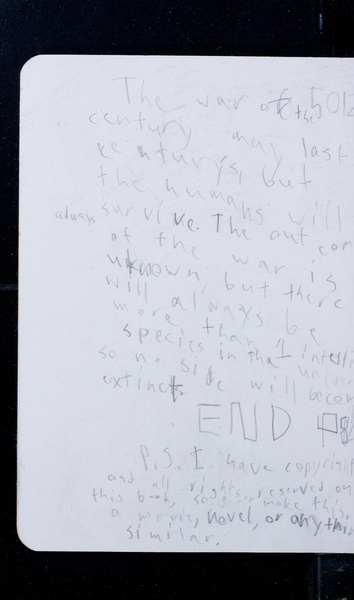 The war of the 501
century may last
centurys, but
the humans will
always survive. The out com
of the war is
unknown, but there
will always be
more than 1 intelli
species in the univer
so no side will becom
extinct.
END
P.S. I have copyright
and all rights reserved on
this book, so make this,
a movie, novel, or anythin
similar.